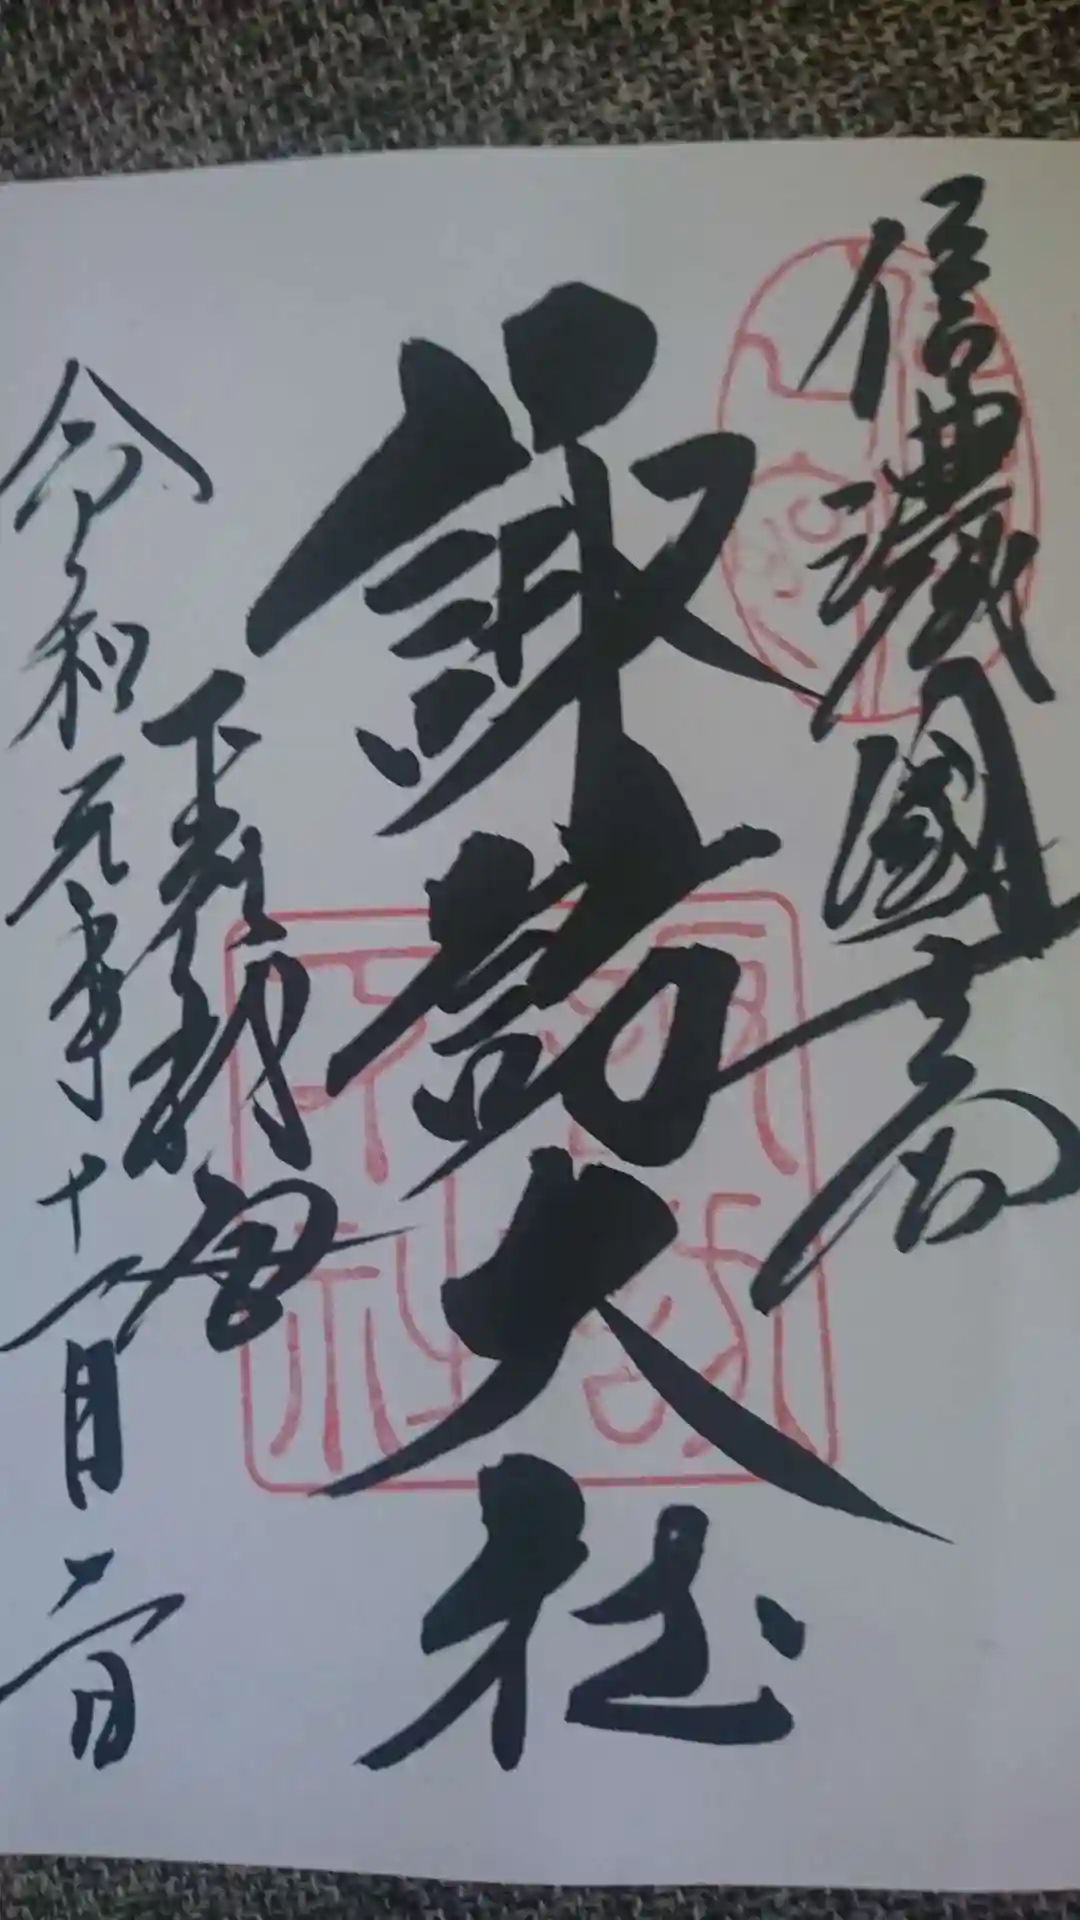 信濃國一之宮
諏訪大社
下社秋宮
令和元年十一月二日
諏訪
下社